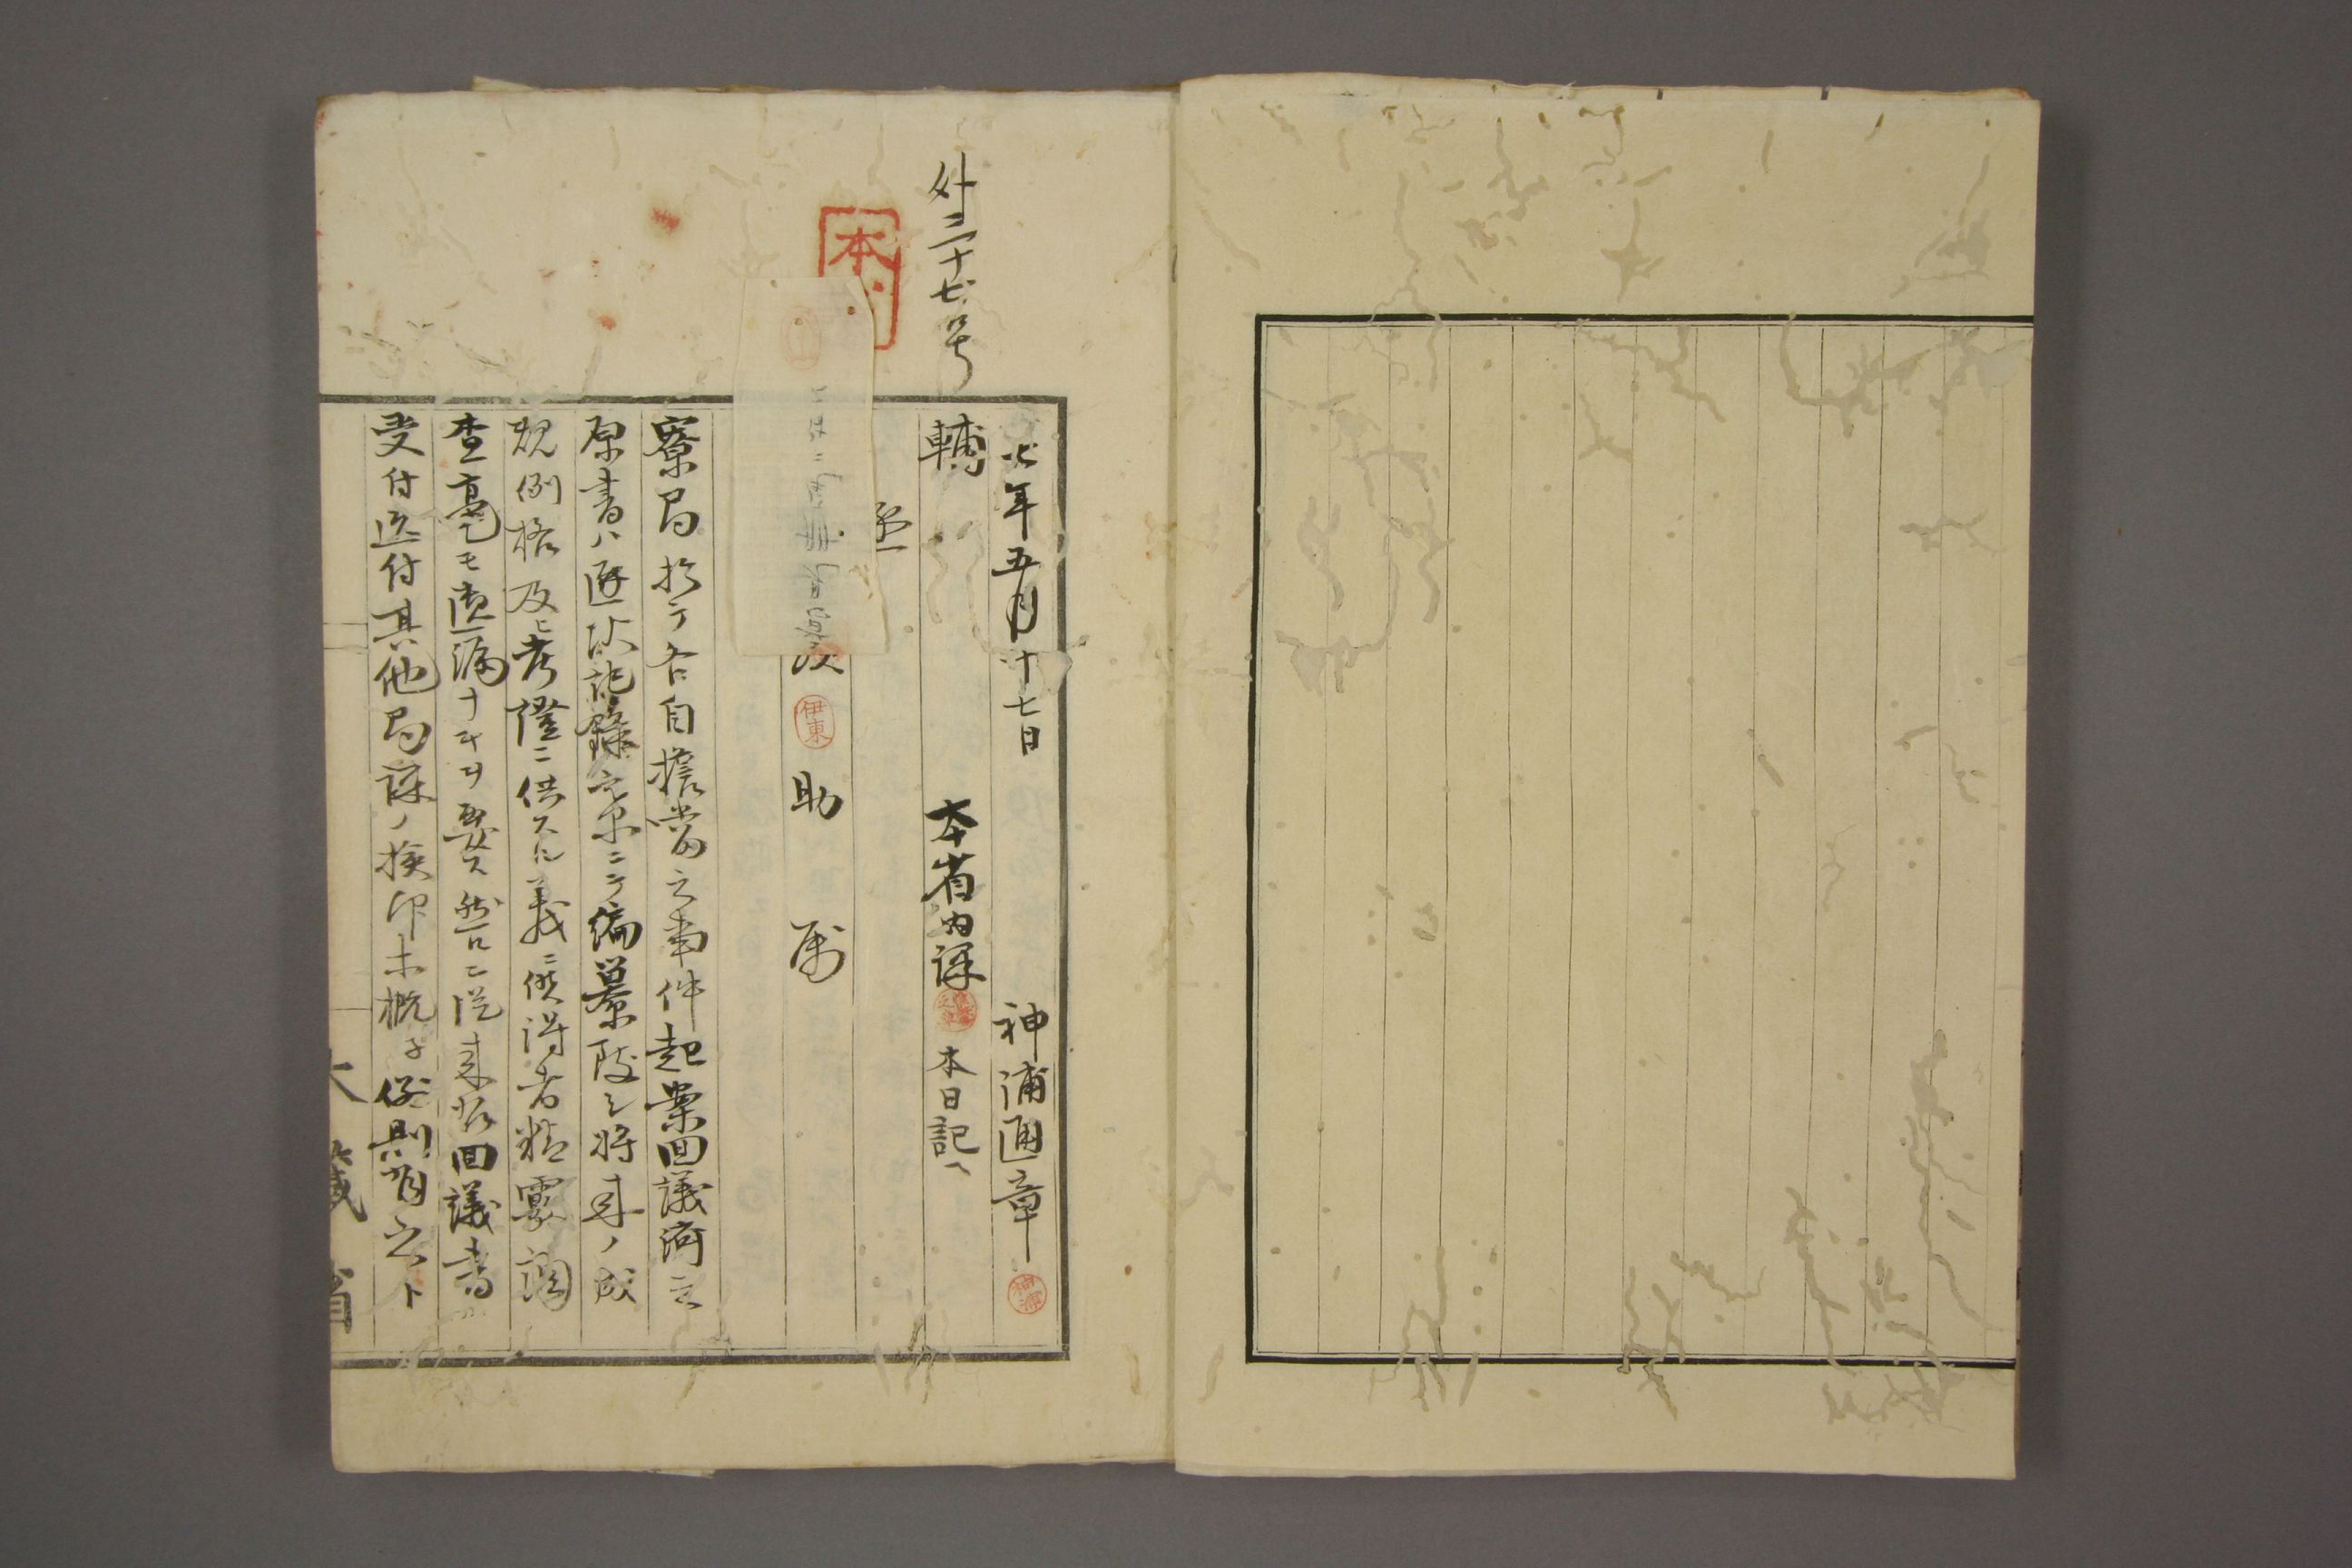 外三十七号
本
七年五月十七日 神浦通章 神浦
輔 本省内課 本日記
丞
伊東 助 属
寮局於テ各自擔當之事件起案回議済之
原書ハ逐次記録寮ニテ編纂致シ将来ノ成
規例格及ヒ考證ニ供スル義ニ候得者精覈調
査毫モ遺漏ナキヲ要ス然ルニ従来右回議書
受付送付其他局課ノ検印未概子例則有之ト
大藏省